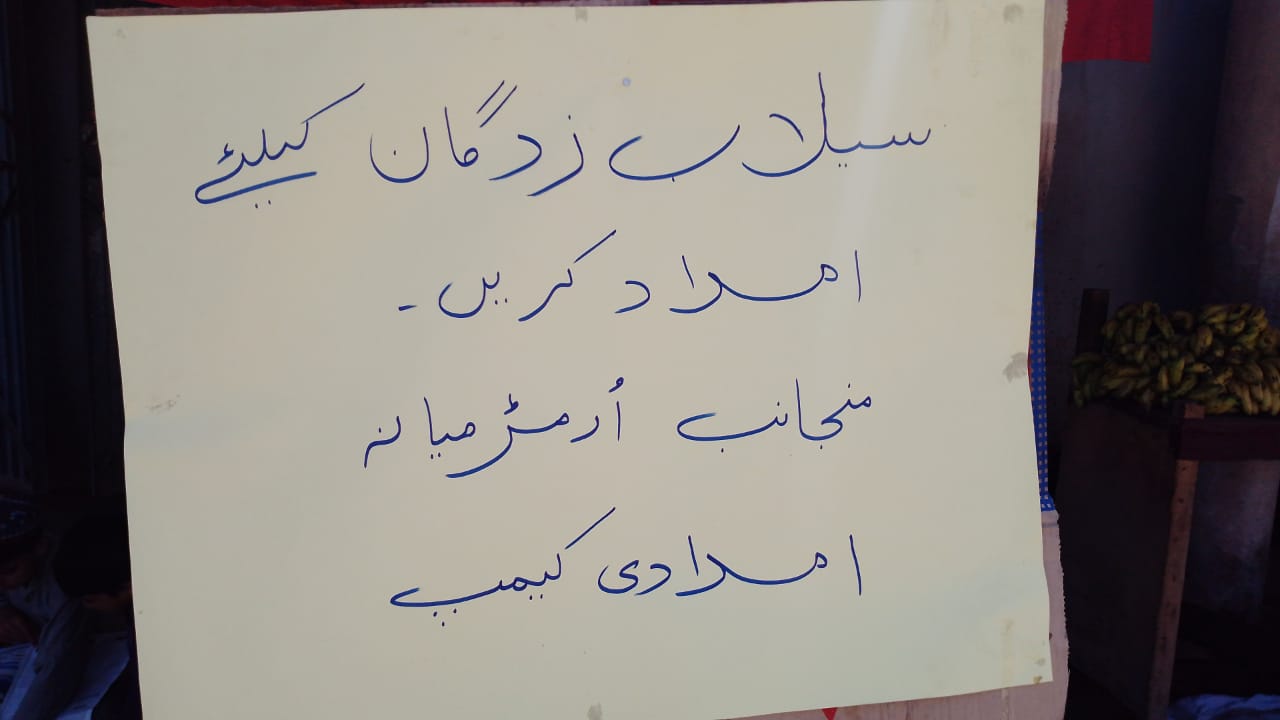 سیلاب زدگان کیلئے
امداد کریں۔
منجانب اُرمڑ میانہ
امدادی کیمپ